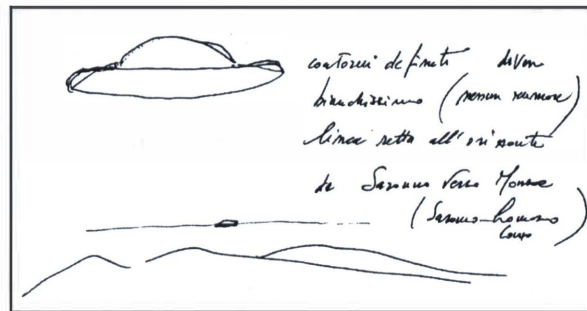 contorni definiti di un
bianchissimo (nessun rumore)
linea retta all'orizzonte
da Saronno verso Monza
(Saronno-Lomazzo